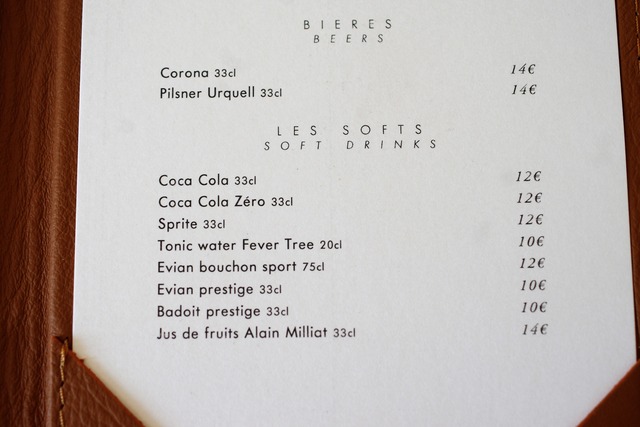 BIERES
BEERS
Corona 33cl 14€
Pilsner Urquell 33cl 14€
LES SOFTS
SOFT DRINKS
Coca Cola 33cl 12€
Coca Cola Zéro 33cl 12€
Sprite 33cl 12€
Tonic water Fever Tree 20cl 10€
Evian bouchon sport 75cl 12€
Evian prestige 33cl 10€
Badoit prestige 33cl 10€
Jus de fruits Alain Milliat 33cl 14€